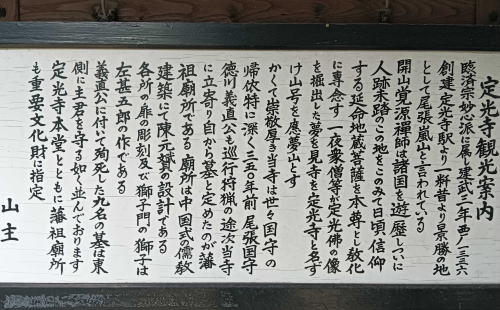 定光寺観光案内
臨済宗妙心派に属し建武三年西ノ一三三六
創建定光寺駅より一粁昔より景勝の地
として尾張嵐山と言われている
開山覚源禅師は諸国を遊歴しついに
人跡未踏のこの地をこのみて日頃信仰
する延命地蔵菩薩を本尊とし教化
に専念す 一夜衆僧等が定光佛の像
を掘出した夢を見寺を定光寺と名ず
け山号を應夢山とす
かくて崇敬厚き当寺は世々国守の
帰依特に深く三五〇年前尾張国守
徳川義直公も巡行狩猟の途次当寺
に立寄り自から墓と定めたのが藩
祖廟所である 廟所は中国式の儒教
建築にて陳元贇の設計である
各所の扉の彫刻及び獅子門の獅子は
左甚五郎の作である
義直公に付いて殉死した九名の墓は東
側に主君を守る如く並んでおります
定光寺本堂とともに藩祖廟所
も重要文化財に指定
山主